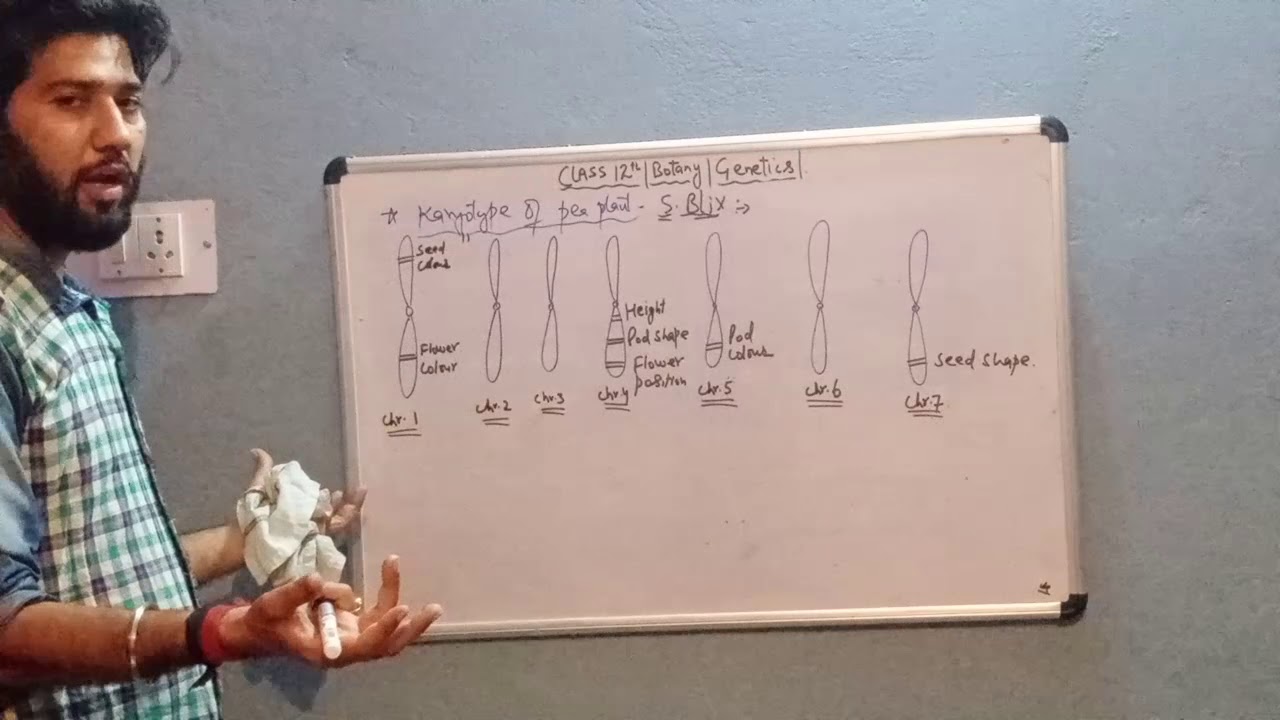 CLASS 12th | Botany | Genetics |
* Karyotype of pea plant - S. Blix :->
Seed
Colour
Flower
Colour
Chr. 1
Chr. 2
Chr. 3
Height
Pod shape
Flower
position
Chr. 4
Pod
Colour
Chr. 5
Chr. 6
Seed shape.
Chr. 7